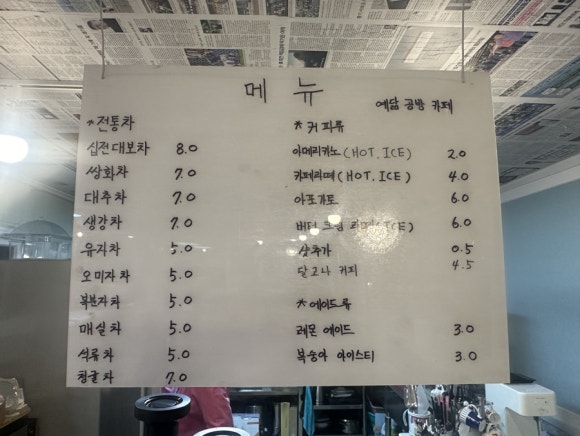 메 뉴
예닮 공방 카페
*전통차
십전대보차 8.0
쌍화차 7.0
대추차 7.0
생강차 7.0
유자차 5.0
오미자차 5.0
복분자차 5.0
매실차 5.0
석류차 5.0
칡꿀차 7.0
*커피류
아메리카노(HOT, ICE) 2.0
카페라떼(HOT, ICE) 4.0
아포가토 6.0
버터 크림 라떼(ICE) 6.0
샷추가 0.5
달고나 커피 4.5
*에이드류
레몬에이드 3.0
복숭아 아이스티 3.0